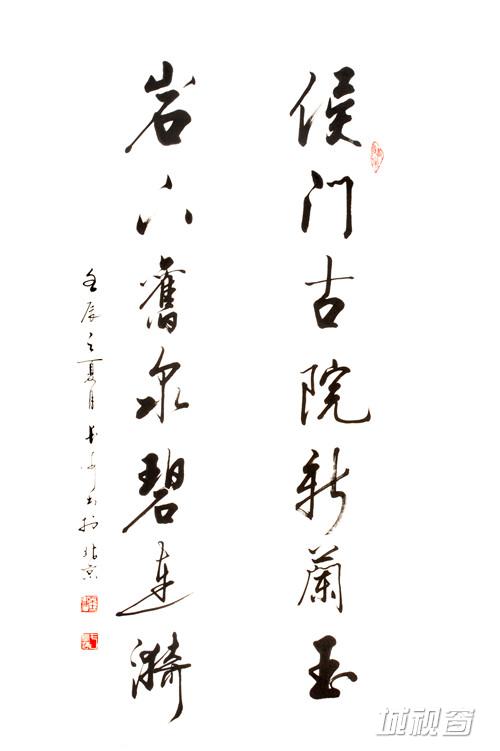 侯门古院新兰玉
岩下旧泉碧连漪
壬辰之夏月
书于北京
城视窗